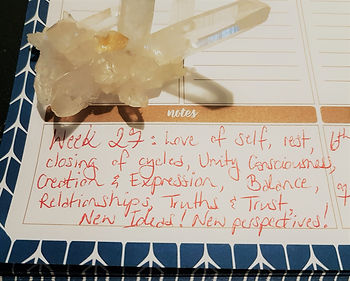 notes
Week 27: Love of self, rest,
closing of cycles, Unity Consciousness,
Creation & Expression, Balance,
Relationships, Truths & Trust,
New Ideas! New perspectives!
6th